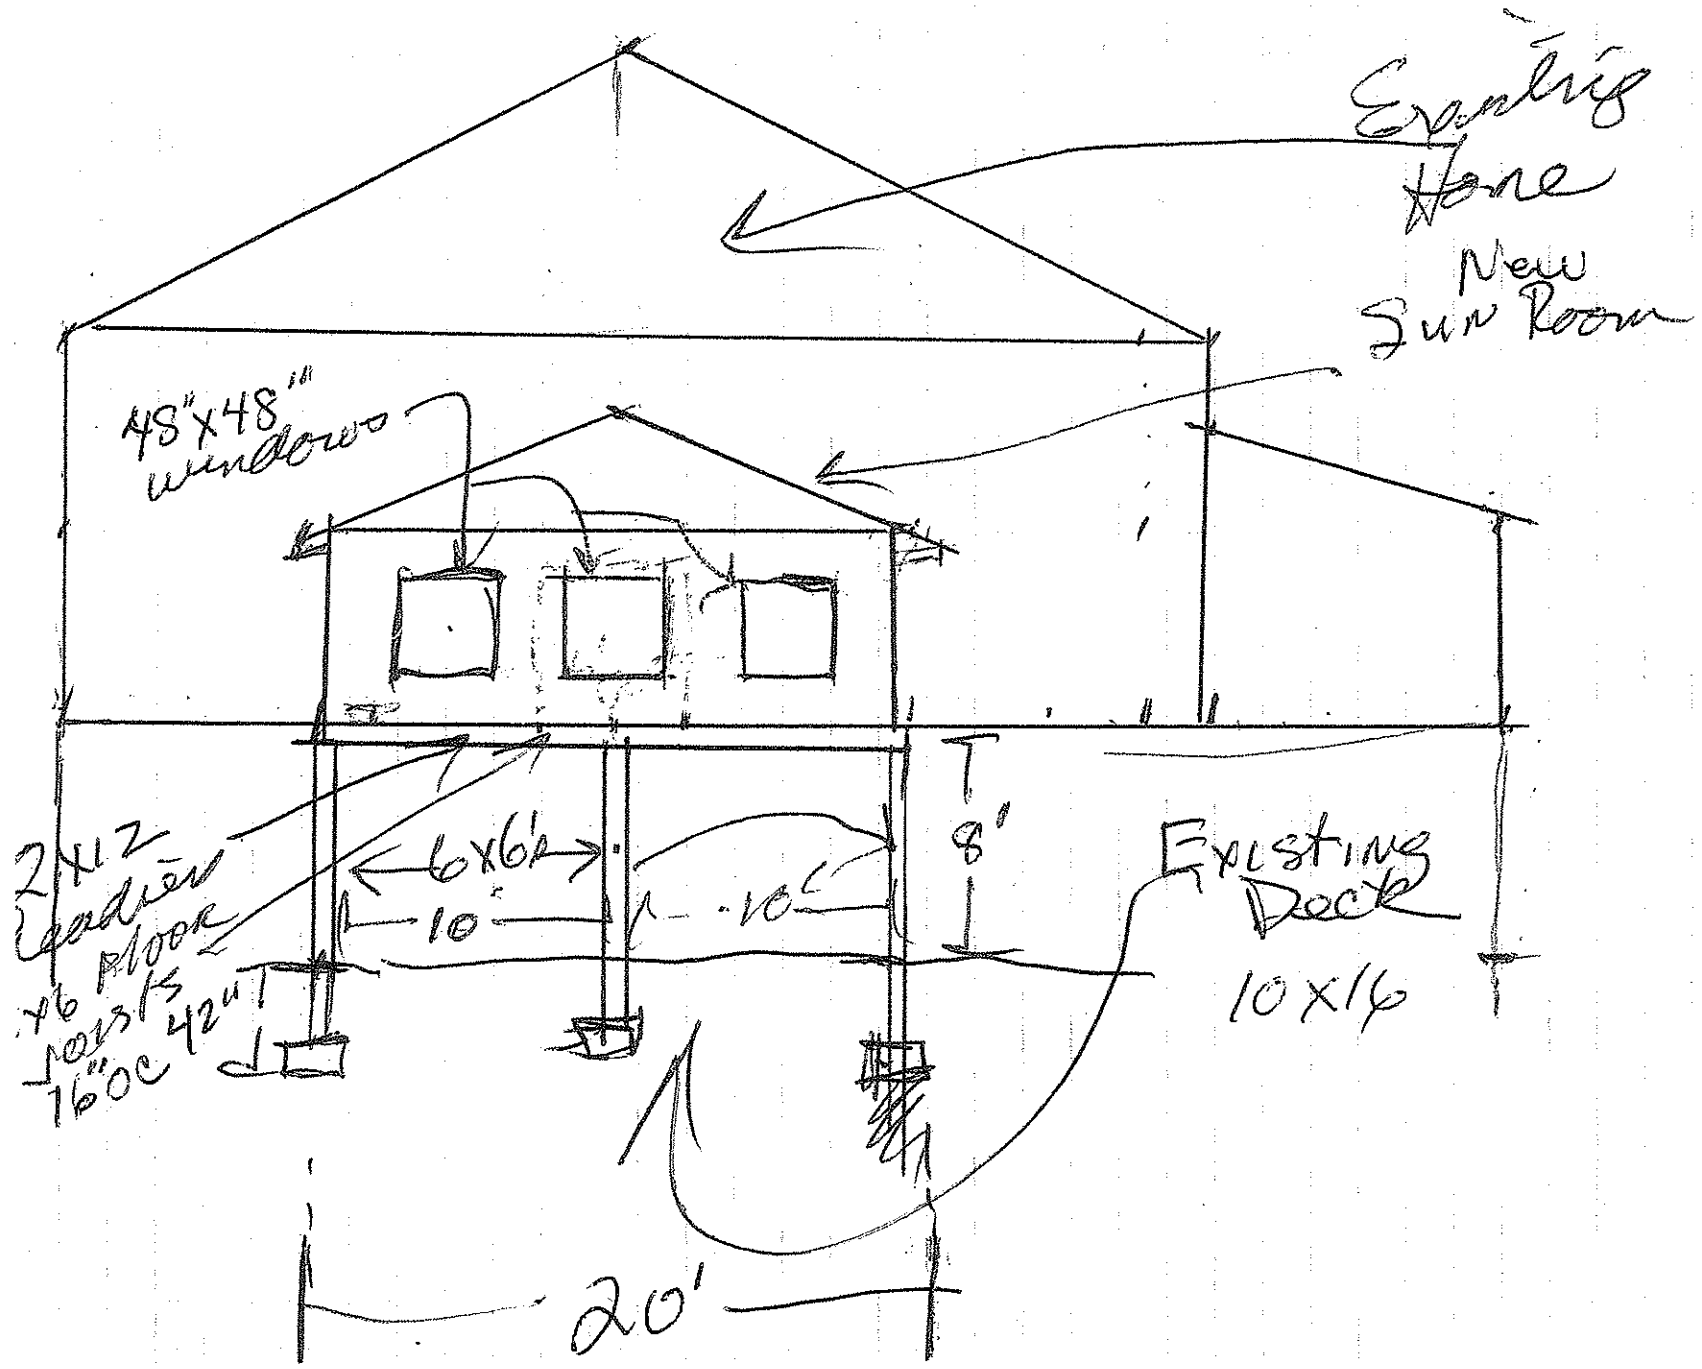 Existing
Home
New
Sun Room
48"x48"
windows
2x12
Leadier
x6 Floor
Joists
16"OC
42"
6x6's
10'
10'
8'
Existing
Deck
10x16
20'